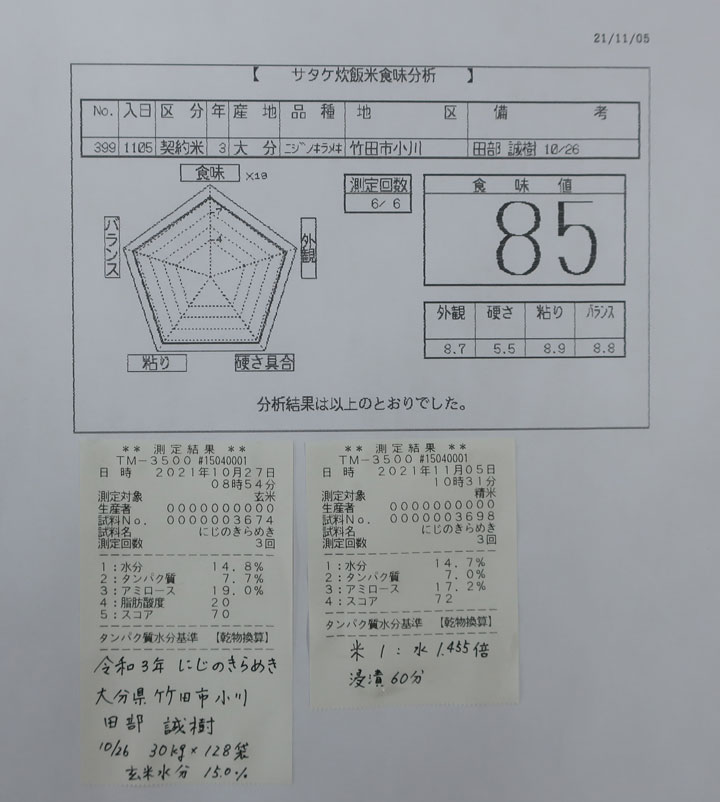 21/11/05
【 サタケ炊飯米食味分析 】
No. 入日 区分 年 産地 品種 地区 備考
399 1105 契約米 3 大分 ニジノキラメキ 竹田市小川 田部 誠樹 10/26
食味 ×10
7
4
バランス
外観
粘り
硬さ具合
測定回数
6/ 6
食味値
85
外観 硬さ 粘り バランス
8.7 5.5 8.9 8.8
分析結果は以上のとおりでした。
** 測定結果 **
TM-3500 #15040001
日 時 2021年10月27日
08時54分
測定対象 玄米
生産者 0000000000
試料No. 0000003674
試料名 にじのきらめき
測定回数 3回
1:水分 14.8%
2:タンパク質 7.7%
3:アミロース 19.0%
4:脂肪酸度 20
5:スコア 70
タンパク質水分基準 【乾物換算】
令和3年 にじのきらめき
大分県竹田市小川
田部 誠樹
10/26 30kg×128袋
玄米水分 15.0%
** 測定結果 **
TM-3500 #15040001
日 時 2021年11月05日
10時31分
測定対象 精米
生産者 0000000000
試料No. 0000003698
試料名 にじのきらめき
測定回数 3回
1:水分 14.7%
2:タンパク質 7.0%
3:アミロース 17.2%
4:スコア 72
タンパク質水分基準 【乾物換算】
米 1 : 水 1.455倍
浸漬 60分